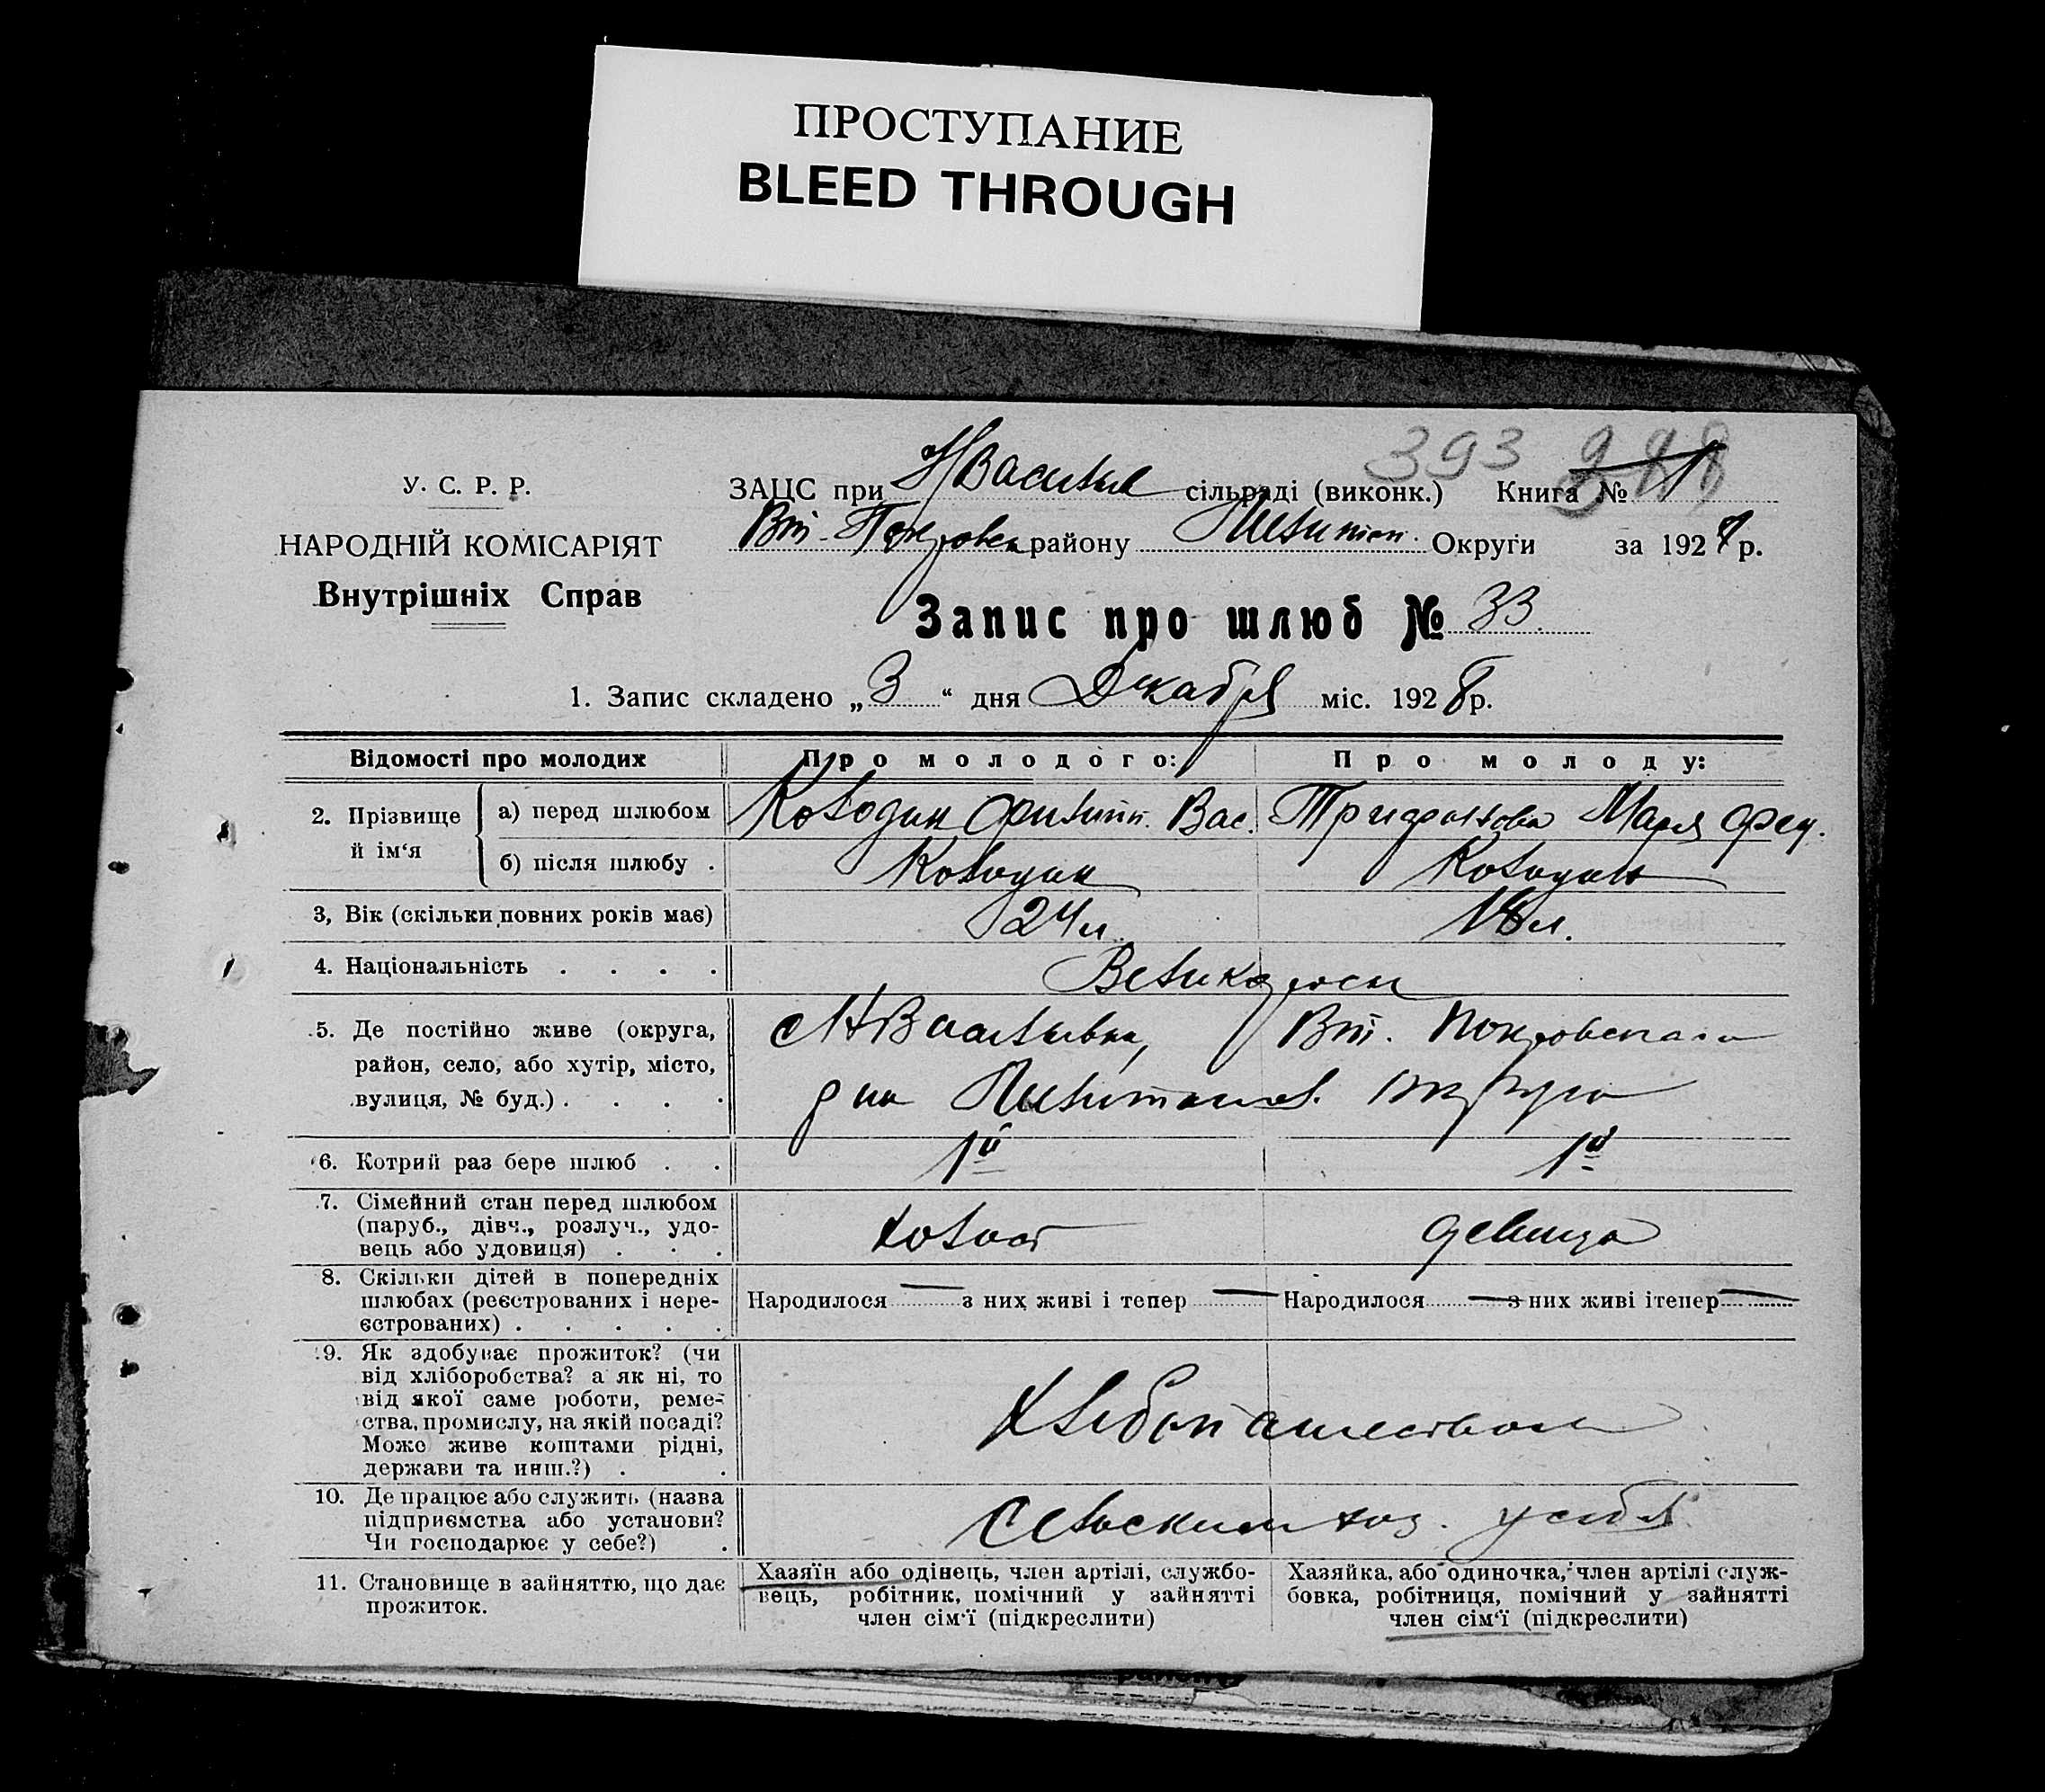 ПРОСТУПАНИЕ
BLEED THROUGH
393
У. С. Р. Р.
НАРОДНІЙ КОМІСАРІЯТ
Внутрішніх Справ
ЗАЦС при НВасильев сільраді (виконк.) Книга № 1
Вт. Покровск району Мелитоп. Округи за 1928 р.
Запис про шлюб № 33
1. Запис складено „3“ дня Декабря міс. 1928 р.
Відомості про молодих
Про молодого:
Про молоду:
2. Прізвище й ім‘я
а) перед шлюбом
Колодин Филипп. Вас.
Марія
б) після шлюбу .
Колодин
Колодин
3, Вік (скільки повних років має)
24 л.
18 л.
4. Національність . . . .
Великоросы
5. Де постійно живе (округа, район, село, або хутір, місто, вулиця, № буд.) . . . .
Н Васильевка, Вт. Покровскаго
р на Мелитопол. округа
6. Котрий раз бере шлюб . .
1й
1й
7. Сімейний стан перед шлюбом (паруб., дівч., розлуч., удовець або удовиця) . . .
холост
девица
8. Скільки дітей в попередніх шлюбах (реєстрованих і нереєстрованих) . . . . .
Народилося — з них живі і тепер —
Народилося — з них живі і тепер —
9. Як здобуває прожиток? (чи від хліборобства? а як ні, то від якої саме роботи, ремества, промислу, на якій посаді? Може живе коштами рідні, держави та инш.?) . .
Хлебопашеством
10. Де працює або служить (назва підприємства або установи? Чи господарює у себе?) .
Сельским хоз. у себя
11. Становище в зайняттю, що дає прожиток.
Хазяїн або одінець, член артілі, службовець, робітник, помічний у зайнятті член сім‘ї (підкреслити)
Хазяйка, або одиночка, член артілі службовка, робітниця, помічний у зайнятті член сім‘ї (підкреслити)